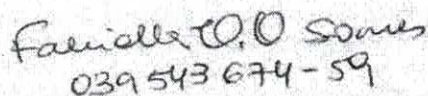 Fabielle O.O Soares
039543674-59